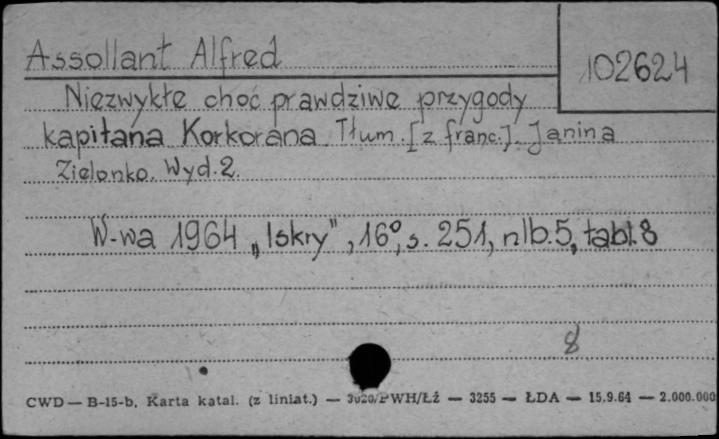 Assollant Alfred
102624
Niezwykłe choć prawdziwe przygody
kapitana Korkorana. Tłum. [z franc.]. Janina
Zielonko. Wyd. 2.
W-wa 1964 „Iskry", 16°, s. 251, nlb. 5, tabl. 8
8
CWD — B-15-b, Karta katal. (z liniat.) — 3020/PWH/Łź — 3255 — ŁDA — 15.9.64 — 2.000.000